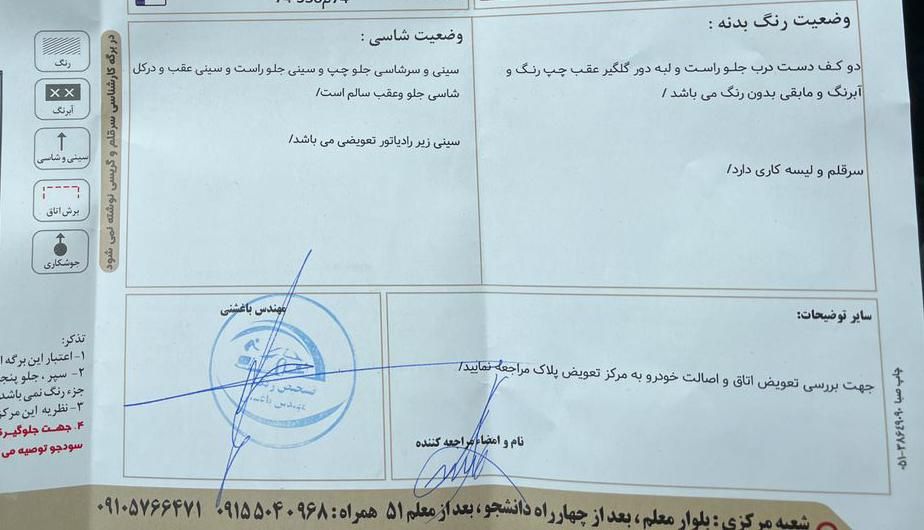 وضعیت رنگ بدنه :
دو کف دست درب جلو راست و لبه دور گلگیر عقب چپ رنگ و
آبرنگ و مابقی بدون رنگ می باشد /
سرقلم و لیسه کاری دارد/
وضعیت شاسی :
سینی و سرشاسی جلو چپ و سینی جلو راست و سینی عقب و درکل
شاسی جلو وعقب سالم است/
سینی زیر رادیاتور تعویضی می باشد/
در برگه کارشناسی سرقلم و گریسی نوشته نمی شود
رنگ
آبرنگ
سینی و شاسی
برش اتاق
جوشکاری
سایر توضیحات:
جهت بررسی تعویض اتاق و اصالت خودرو به مرکز تعویض پلاک مراجعه نمایید/
نام و امضاء مراجعه کننده
مهندس باغشنی
تشخیص رنگ
مهندس باغشنی
تذکر:
۱- اعتبار این برگه
۲- سپر ، جلو پنج
جزء رنگ نمی باشد
۳- نظریه این مرکز
۴. جهت جلوگیری
سودجو توصیه می
چاپ صبا ۳۸۶۴۹۰۹۰-۰۵۱
شعبه مرکزی : بلوار معلم ، بعد از چهارراه دانشجو ، بعد از معلم ۵۱ همراه : ۰۹۱۵۵۰۴۰۹۶۸ ۰۹۱۰۵۷۶۶۴۷۱